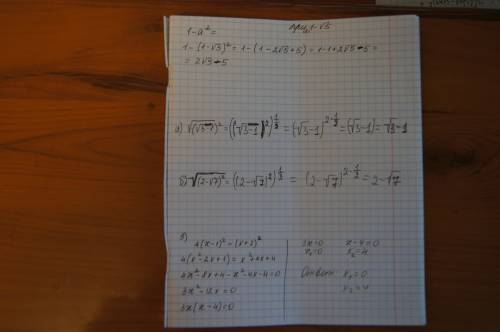 1-a²=
при 1-√3
1-(1-√3)²=1-(1-2√3+5)=1-1+2√3-5=
=2√3-5
а) √(√3-1)²=((√3-1)²)^{1/2}=(√3-1)^{2·1/2}=(√3-1)=√3-1
б) √(2-√7)²=((2-√7)²)^{1/2}=(2-√7)^{2·1/2}=2-√7
4(x-1)²=(x+2)²
4(x²-2x+1)=x²+4x+4
4x²-8x+4-x²-4x-4=0
3x²-12x=0
3x(x-4)=0
3x=0 x-4=0
x₁=0 x₂=4
Ответ: x₁=0
x₂=4